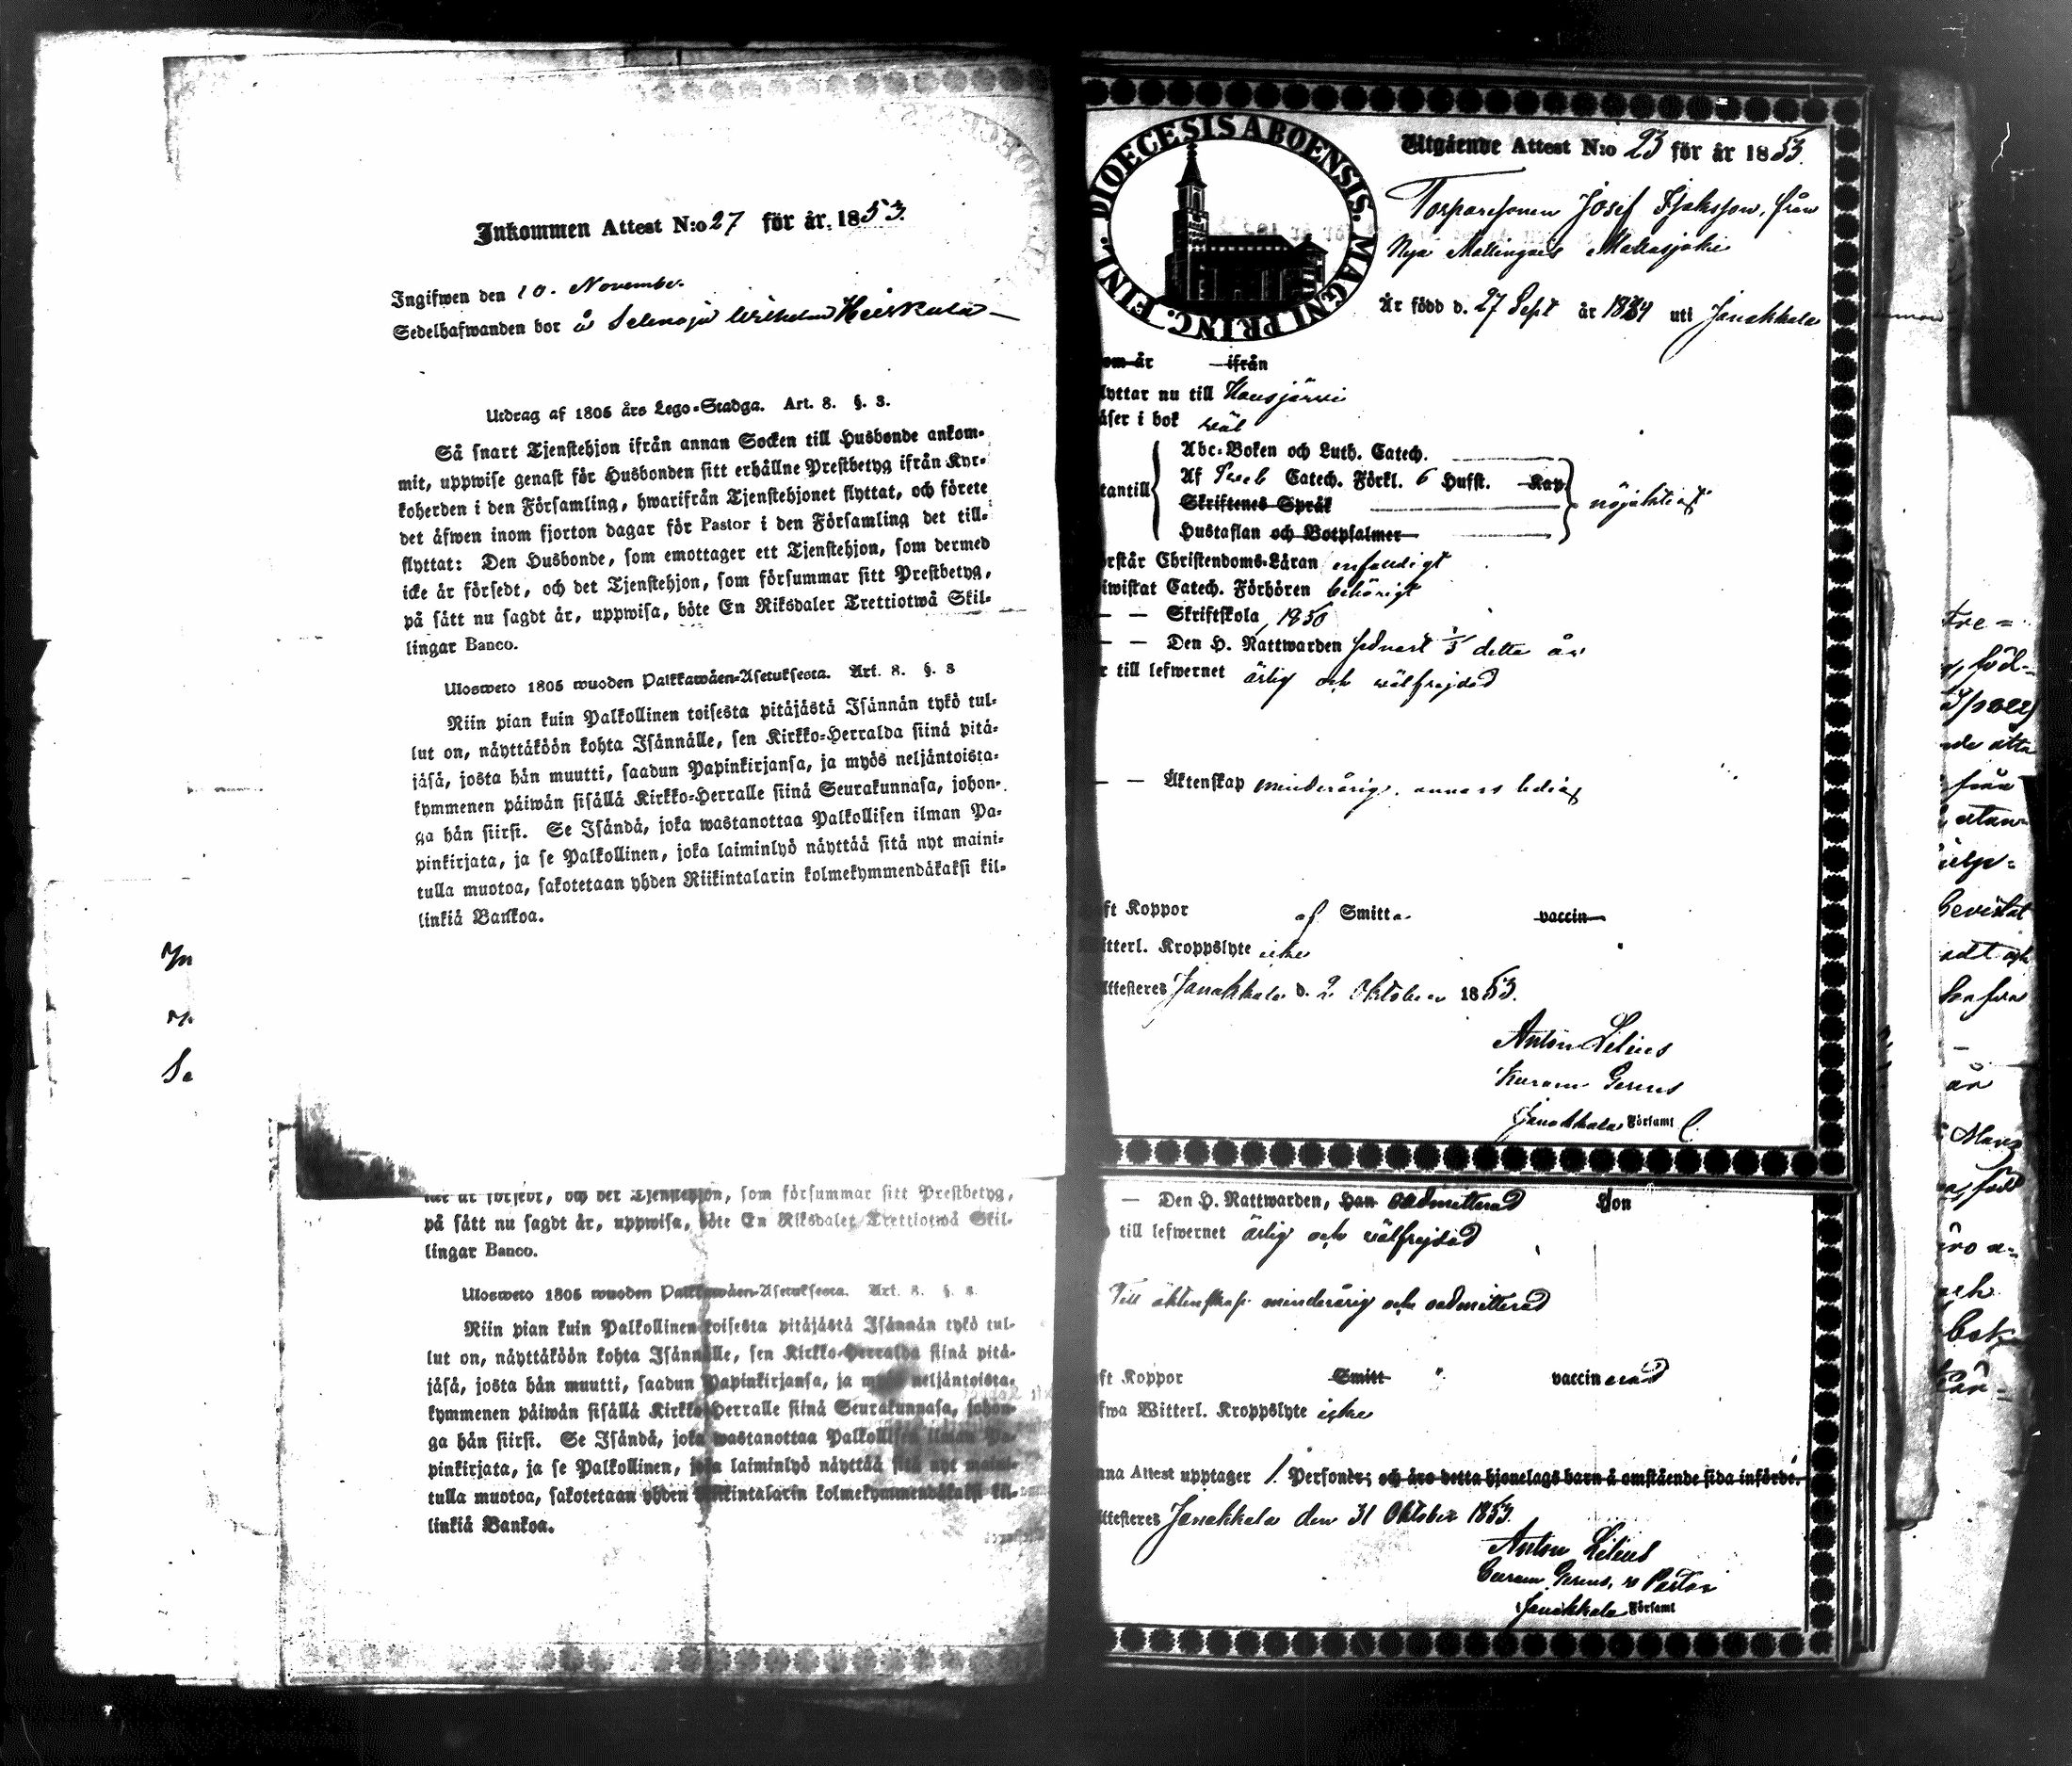 Inkommen Attest N:o 27 för år 1853.
Ingifwen den 10. November
Sedelhafwanden bor å Selänoja Wilhelm Heiskala
Utdrag af 1805 års Lego-Stadga. Art. 8. §. 3.
Så snart Tjenstehjon ifrån annan Socken till Husbonde ankom-
mit, uppwise genast för Husbonden sitt erhållne Prestbetyg ifrån Kyr-
koherden i den Församling, hwarifrån Tjenstehjonet flyttat, och förete
det äfwen inom fjorton dagar för Pastor i den Församling det till-
flyttat: Den Husbonde, som emottager ett Tjenstehjon, som dermed
icke är försedt, och det Tjenstehjon, som försummar sitt Prestbetyg,
på sätt nu sagdt är, uppwisa, böte En Riksdaler Trettiotwå Skil-
lingar Banco.
Ulosweto 1805 wuoden Palkkawäen-Asetuksesta. Art. 8. §. 3
Niin pian kuin Palkollinen toisesta pitäjästä Isännän tykö tul-
lut on, näyttäköön kohta Isännälle, sen Kirkko-Herralda siinä pitä-
jäsä, josta hän muutti, saadun Papinkirjansa, ja myös neljäntoista-
kymmenen päiwän sisällä Kirkko-Herralle siinä Seurakunnasa, johon-
ga hän siirsi. Se Isändä, joka wastanottaa Palkollisen ilman Pa-
pinkirjata, ja se Palkollinen, joka laiminlyö näyttää sitä nyt maini-
tulla muotoa, sakotetaan yhden Riikintalarin kolmekymmendäkaksi kil-
linkiä Bankoa.
icke är försedt, och det Tjenstehjon, som försummar sitt Prestbetyg,
på sätt nu sagdt är, uppwisa, böte En Riksdaler Trettiotwå Skil-
lingar Banco.
Ulosweto 1805 wuoden Palkkawäen-Asetuksesta. Art. 8. §. 3.
Niin pian kuin Palkollinen toisesta pitäjästä Isännän tykö tul-
lut on, näyttäköön kohta Isännälle, sen Kirkko-Herralda siinä pitä-
jäsä, josta hän muutti, saadun Papinkirjansa, ja myös neljäntoista-
kymmenen päiwän sisällä Kirkko-Herralle siinä Seurakunnasa, johon-
ga hän siirsi. Se Isändä, joka wastanottaa Palkollisen ilman Pa-
pinkirjata, ja se Palkollinen, joka laiminlyö näyttää sitä nyt maini-
tulla muotoa, sakotetaan yhden Riikintalarin kolmekymmendäkaksi kil-
linkiä Bankoa.
DIOECESIS ABOENSIS. MAGNI PRINC. FINL.
Utgående Attest N:o 23 för år 1853.
Torparesonen Josef Isaksson, från
Nya Mallinga
Är född d. 27 Sept år 18 uti Janakkala
om år ifrån
lyttar nu till Hausjärvi
äser i bok wäl
tantill
Abc-Boken och Luth. Catech.
Af Catech. Förkl. 6 Hufst. Kap.
Skriftenes Språk
Hustaflan och Botpsalmer
nöjaktigt
rstår Christendoms-Läran enfaldigt
iwistat Catech. Förhören behörigt
— — Skriftskola 1850
— — Den H. Nattwarden sednast detta år
r till lefwernet ärlig och wälfrejdad
— — Äktenskap minderårig, annars ledig
ft Koppor af Smitta vaccin
itterl. Kroppslyte icke
ttesteres Janakkala d. 2 Oktober 1853.
Anton Lilius
Curam Gerens
Janakkala Församl
— Den H. Nattwarden, Han oadmitterad Hon
till lefwernet ärlig och wälfrejdad
Till äktenskap minderårig och oadmitterad
ft Koppor Smitt vaccinerad
fwa Witterl. Kroppslyte icke
nna Attest upptager 1 Personer; och äro detta hjonelags barn å omstående sida införde.
ttesteres Janakkala den 31 Oktober 1853.
Anton Lilius
Curam Gerens, v Pastor
Janakkala Församl
född
från
utan
bevistat
och
är
född
och
bok